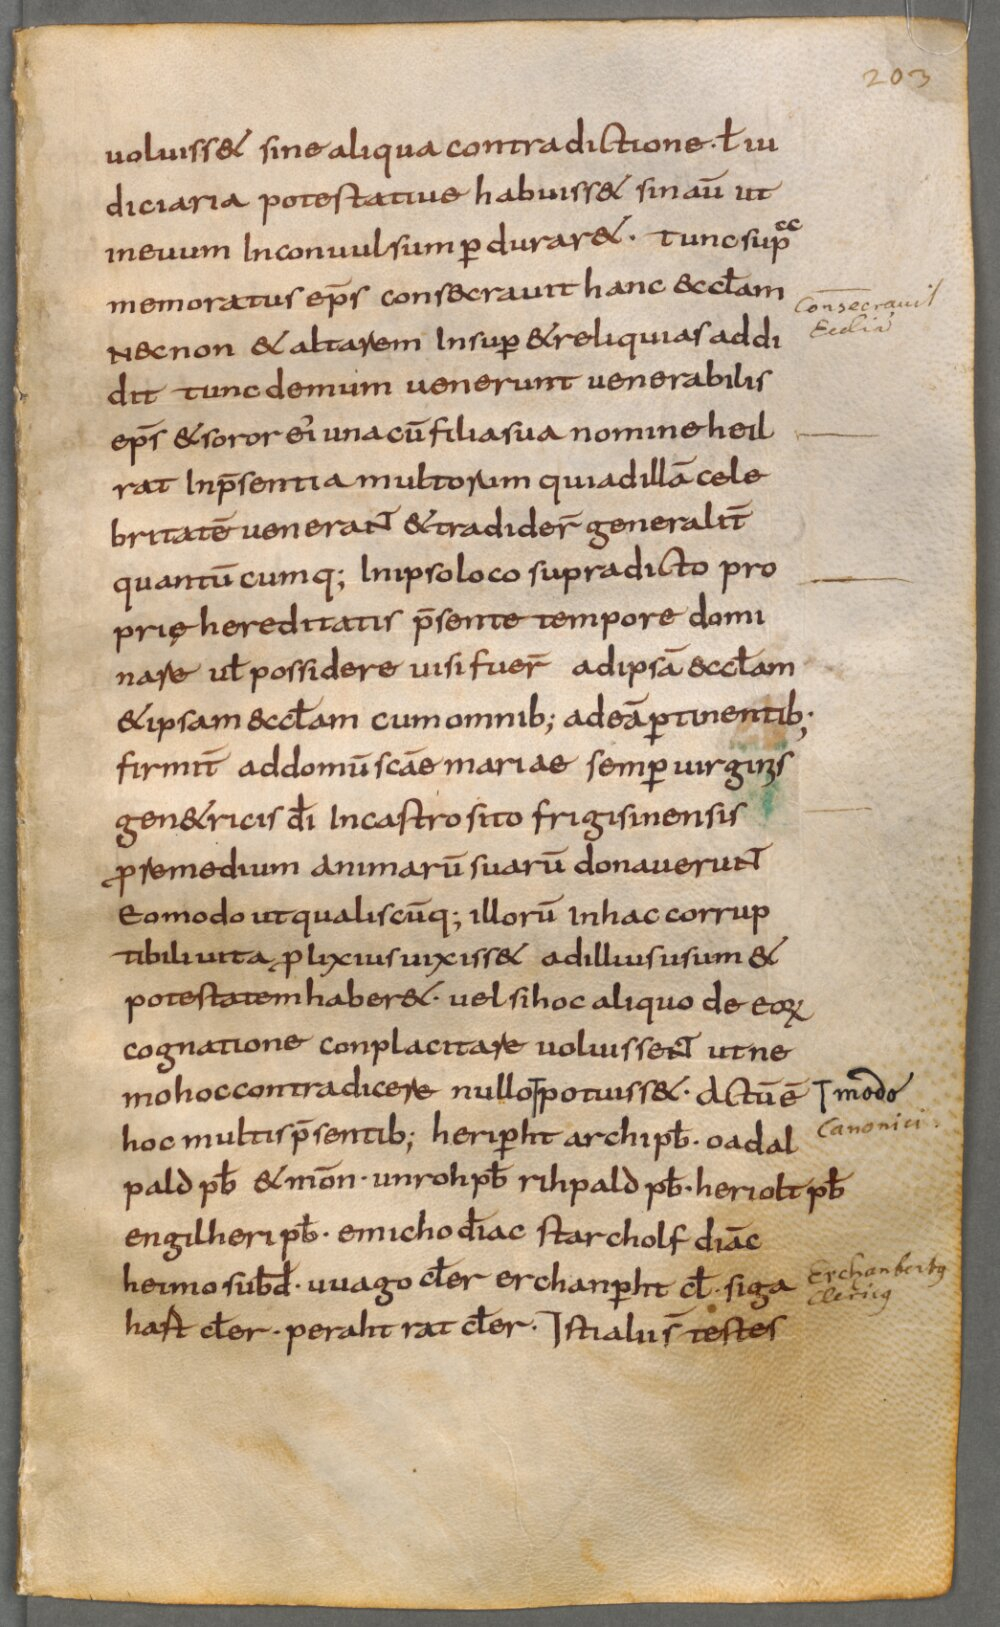 203
uoluiss& sine aliqua contradictione · ł iu
diciaria potestatiue habuiss& sin aū ut
in euum Inconuulsum ꝑdurar& · tunc sup̄
memoratus ep̄s consecrauit hanc &ccl̄am
Consecrauit
Ecclia
N&cnon & altarem Insuꝑ & reliquias addi
dit tunc demum uenerunt uenerabilis
ep̄s & soror ei una cū filia sua nomine heil
rat In p̄sentia multorum qui ad illā cele
britatē ueneraNT & tradider̄ generalit̄
quantū cumq; In ipso loco supradicto pro
prię hereditatis p̄sente tempore domi
nare ul̄ possidere uisi fuer̄ ad ipsā &ccl̄am
& ipsam &ccl̄am cum omnib; ad eā ꝑtinentib;
firmit̄ ad domū scāe mariae semꝑ uirginis
gen&ricis dī In castro sito frigisinensis
ꝓ remedium animarū suarū donaueruNT
Eo modo ut qualiscūq; illorū in hac corrup
tibili uita ꝓlixius uixiss& ad illius usum &
potestatem haber& · uel si hoc aliquo de eoꝝ
cognatione conplacitare uoluisseNT ut ne
mo hoc contradicere nullo potuiss& · Actū ē
modo
hoc multis p̄sentib; heriꝑht archipb̄ · oadal
Canonici
pald pb̄ & mōn · unroh pb̄ rihpald pb̄ · heriolt pb̄
engilheri pb̄ · emicho diac starcholf diāc
heimo subd̄ · uuago cl̄er erchanꝑht cl̄ · siga
Erchanbertg
Clericg
hast cl̄er · peraht rat cl̄er · Isti aluś testes